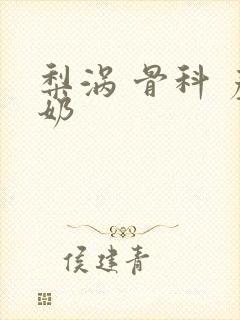 梨涡 骨科
奶
侯建青